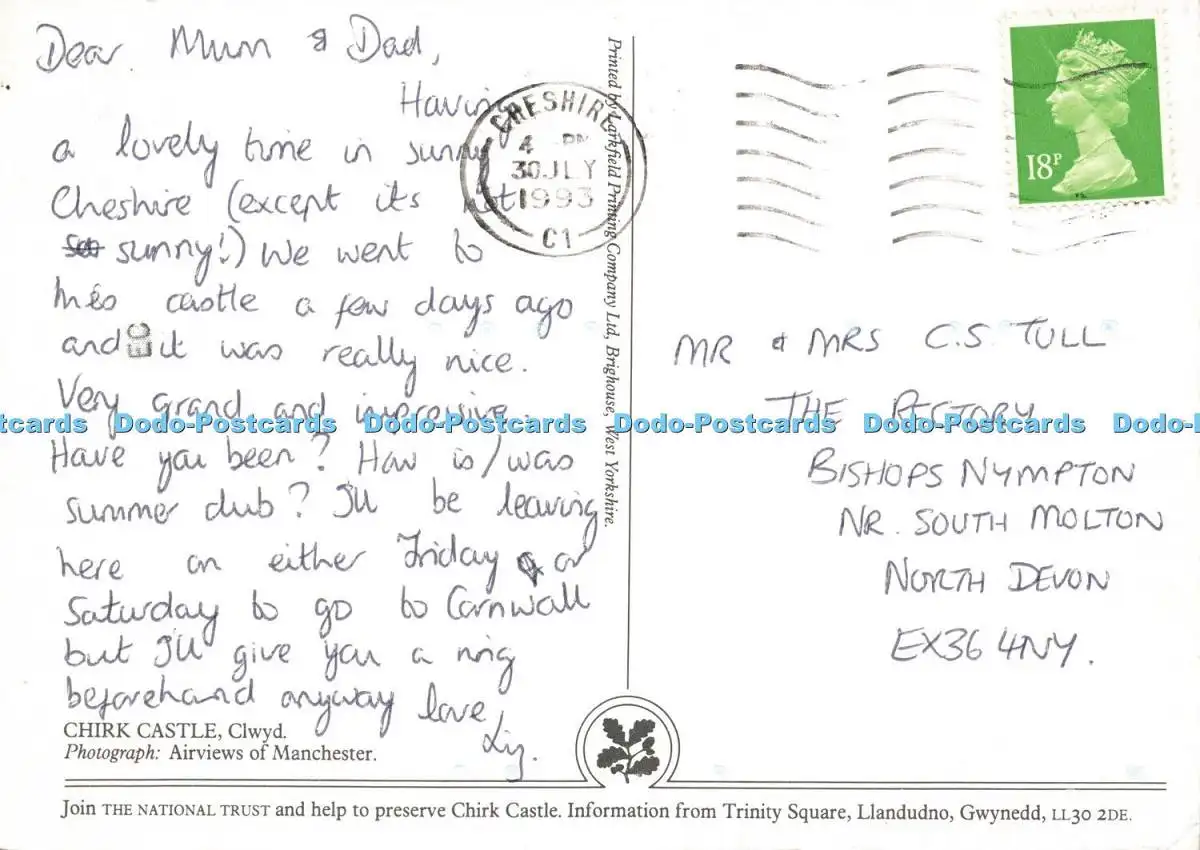 Dear Mum & Dad,
Having
a lovely time in sunny
Cheshire (except its not
sunny!) We went to
this castle a few days ago
and it was really nice.
Very grand and impressive.
Have you been? How is/was
summer club? I'll be leaving
here on either Friday or
Saturday to go to Cornwall
but I'll give you a ring
beforehand anyway love,
Liz.
CHIRK CASTLE, Clwyd.
Photograph: Airviews of Manchester.
Printed by Larkfield Printing Company Ltd, Brighouse, West Yorkshire.
CHESHIRE
4 PM
30 JLY
1993
C1
18P
MR & MRS C.S. TULL
THE RECTORY
BISHOPS NYMPTON
NR. SOUTH MOLTON
NORTH DEVON
EX36 4NY.
Dodo-Postcards Dodo-Postcards Dodo-Postcards Dodo-Postcards Dodo-Postcards
Join THE NATIONAL TRUST and help to preserve Chirk Castle. Information from Trinity Square, Llandudno, Gwynedd, LL30 2DE.